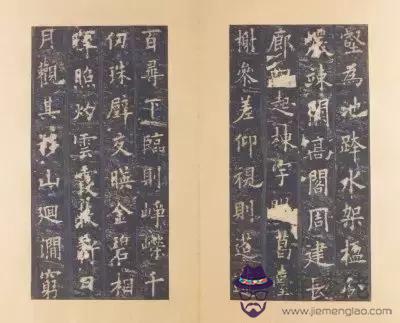 壑為池跨水架楹分
巖竦闕高閣周建長
廊起棟宇葛臺
榭參差仰視則迢
百尋下臨則崢嶸千
仞珠璧交暎金碧相
暉照灼雲霞蔽虧日
月觀其移山迴澗窮
www.jiemenglao.com